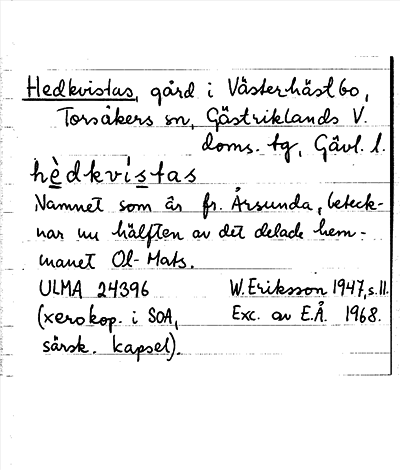 Hedkvistas, gård i Västerhästbo,
Torsåkers sn, Gästriklands V.
doms. tg, Gävl. l.
hèdkvístas
Namnet som är fr. Årsunda, beteck-
nar nu hälften av det delade hem-
manet Ol-Mats.
ULMA 24396 W. Eriksson 1947, s. 11.
(xerokop. i SOA, Exc. av E.Å. 1968.
särsk. kapsel).